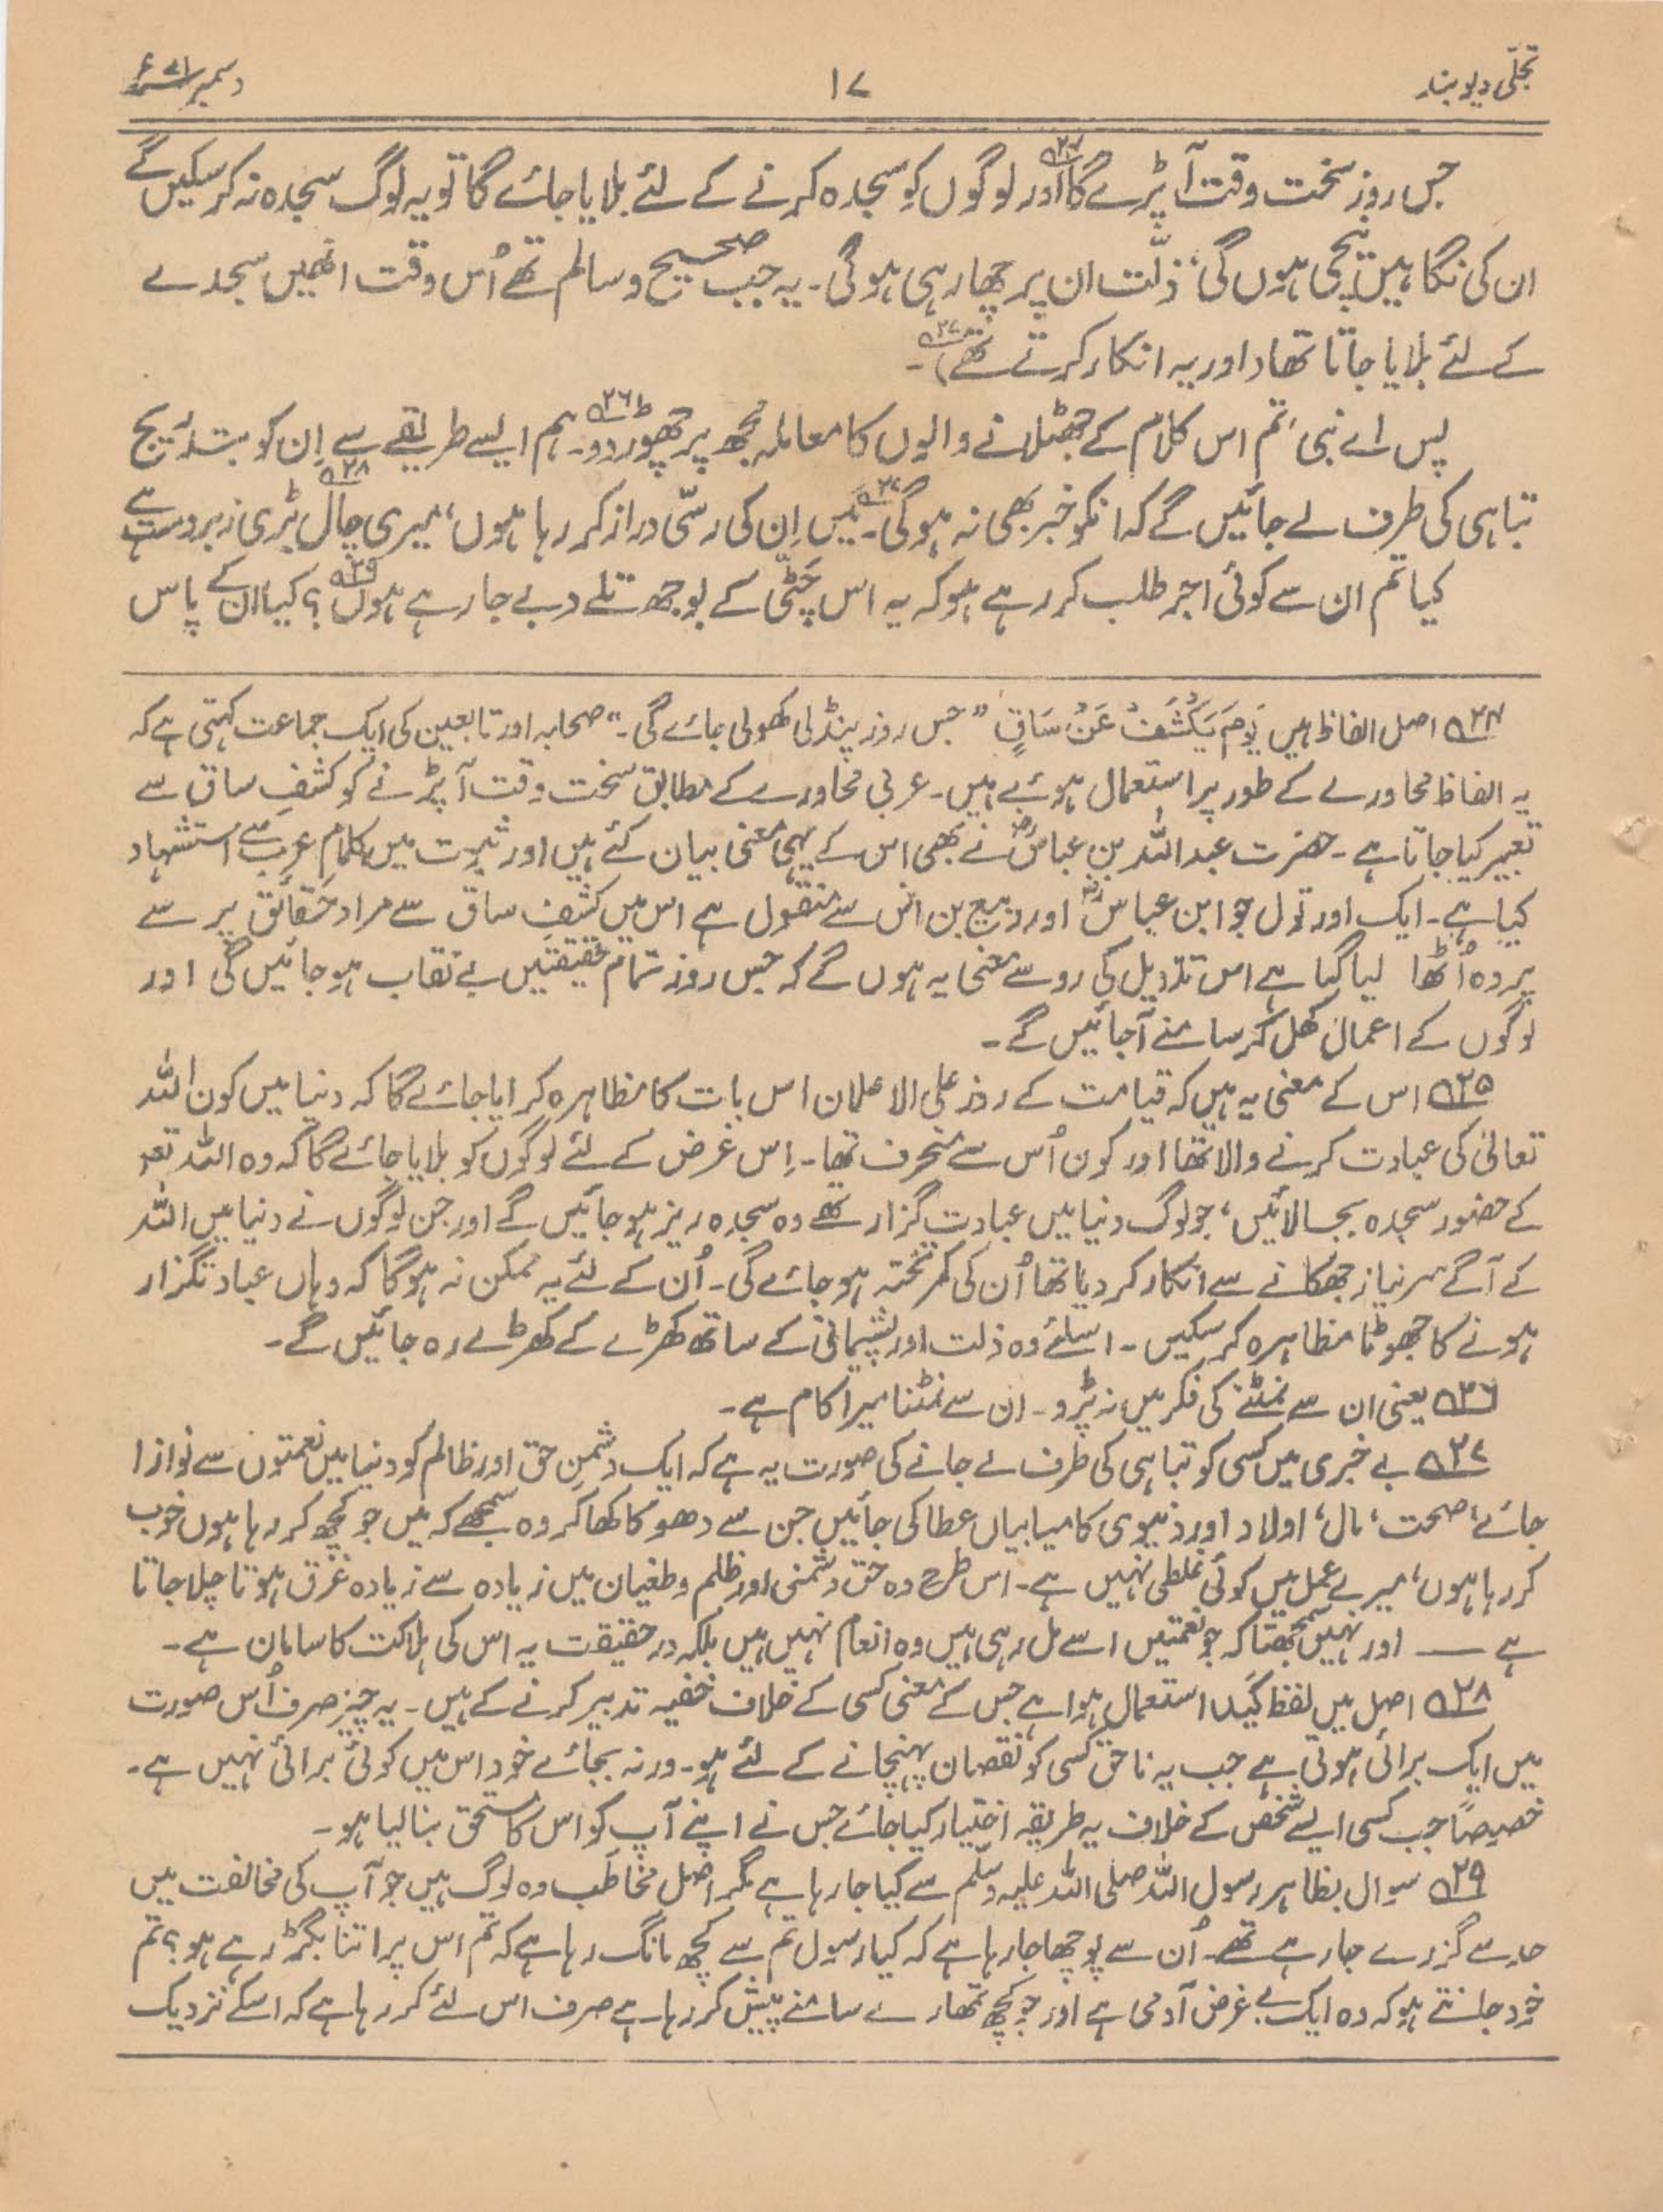 تجلّی دیوبند
۱۷
دسمبر ۷۱ء
جس روز سخت وقت آپڑے گا۲۴ اور لوگوں کو سجدہ کرنے کے لئے بلایا جائے گا تو یہ لوگ سجدہ نہ کر سکیں گے
ان کی نگاہیں نیچی ہوں گی، ذلّت ان پر چھا رہی ہوگی۔ یہ جب صحیح و سالم تھے اُس وقت انھیں سجدے
کے لئے بلایا جاتا تھا (اور یہ انکار کرتے تھے)۔
پس اے نبی، تم اس کلام کے جھٹلانے والوں کا معاملہ مجھ پر چھوڑ دو۔۲۶ ہم ایسے طریقے سے اِن کو بتدریج
تباہی کی طرف لے جائیں گے کہ انکو خبر بھی نہ ہوگی۔۲۷ میں اِن کی رسّی دراز کر رہا ہوں، میری چال۲۸ بڑی زبردست ہے
کیا تم ان سے کوئی اجر طلب کر رہے ہو کہ یہ اس چَٹّی کے بوجھ تلے دبے جا رہے ہوں۲۹؟ کیا ان کے پاس
۲۴ اصل الفاظ ہیں یَوْمَ یُکْشَفُ عَنْ سَاقٍ ”جس روز پنڈلی کھولی جائے گی۔“ صحابہ اور تابعین کی ایک جماعت کہتی ہے کہ
یہ الفاظ محاورے کے طور پر استعمال ہوئے ہیں۔ عربی محاورے کے مطابق سخت وقت آپڑنے کو کشفِ ساق سے
تعبیر کیا جاتا ہے۔ حضرت عبد اللہ بن عباسؓ نے بھی اس کے یہی معنی بیان کئے ہیں اور ثبوت میں کلامِ عرب سے استشہاد
کیا ہے۔ ایک اور قول جو ابن عباسؓ اور ربیع بن انس سے منقول ہے اس میں کشفِ ساق سے مراد حقائق پر سے
پردہ اُٹھا لیا گیا ہے اس تاویل کی رو سے معنی یہ ہوں گے کہ جس روز تمام حقیقتیں بے نقاب ہو جائیں گی اور
لوگوں کے اعمال کھل کر سامنے آجائیں گے۔
۲۵ اس کے معنی یہ ہیں کہ قیامت کے روز علی الاعلان اس بات کا مظاہرہ کرایا جائے گا کہ دنیا میں کون اللہ
تعالیٰ کی عبادت کرنے والا تھا اور کون اُس سے منحرف تھا۔ اِس غرض کے لئے لوگوں کو بلایا جائے گا کہ وہ اللہ تعہ
کے حضور سجدہ بجا لائیں، جو لوگ دنیا میں عبادت گزار تھے وہ سجدہ ریز ہو جائیں گے اور جن لوگوں نے دنیا میں اللہ
کے آگے سر نیاز جھکانے سے انکار کر دیا تھا اُن کی کمر تختہ ہو جائے گی۔ اُن کے لئے یہ ممکن نہ ہوگا کہ وہاں عبادتگزار
ہونے کا جھوٹا مظاہرہ کر سکیں۔ اسلئے وہ ذلت اور پشیمانی کے ساتھ کھڑے کے کھڑے رہ جائیں گے۔
۲۶ یعنی ان سے نمٹنے کی فکر میں نہ پڑو۔ ان سے نمٹنا میرا کام ہے۔
۲۷ بے خبری میں کسی کو تباہی کی طرف لے جانے کی صورت یہ ہے کہ ایک دشمنِ حق اور ظالم کو دنیا میں نعمتوں سے نوازا
جائے، صحت، مال، اولاد اور دنیوی کامیابیاں عطا کی جائیں جن سے دھوکا کھا کر وہ سمجھے کہ میں جو کچھ کر رہا ہوں خوب
کر رہا ہوں، میرے عمل میں کوئی غلطی نہیں ہے۔ اس طرح وہ حق دشمنی اور ظلم و طغیان میں زیادہ سے زیادہ غرق ہوتا چلا جاتا
ہے — اور نہیں سمجھتا کہ جو نعمتیں اسے مل رہی ہیں وہ انعام نہیں ہیں بلکہ در حقیقت یہ اس کی ہلاکت کا سامان ہے۔
۲۸ اصل میں لفظ کَید استعمال ہوا ہے جس کے معنی کسی کے خلاف خفیہ تدبیر کرنے کے ہیں۔ یہ چیز صرف اُس صورت
میں ایک برائی ہوتی ہے جب یہ ناحق کسی کو نقصان پہنچانے کے لئے ہو۔ ورنہ بجائے خود اس میں کوئی برائی نہیں ہے۔
خصوصاً جب کسی ایسے شخص کے خلاف یہ طریقہ اختیار کیا جائے جس نے اپنے آپ کو اس کا مستحق بنا لیا ہو۔
۲۹ سوال بظاہر رسول اللہ صلی اللہ علیہ وسلّم سے کیا جا رہا ہے مگر اصل مخاطَب وہ لوگ ہیں جو آپ کی مخالفت میں
حد سے گزرے جا رہے تھے۔ اُن سے پوچھا جا رہا ہے کہ کیا رسول تم سے کچھ مانگ رہا ہے کہ تم اس پر اتنا بگڑ رہے ہو؟ تم
خود جانتے ہو کہ وہ ایک بے غرض آدمی ہے اور جو کچھ تمھارے سامنے پیش کر رہا ہے صرف اس لئے کر رہا ہے کہ اسکے نزدیک